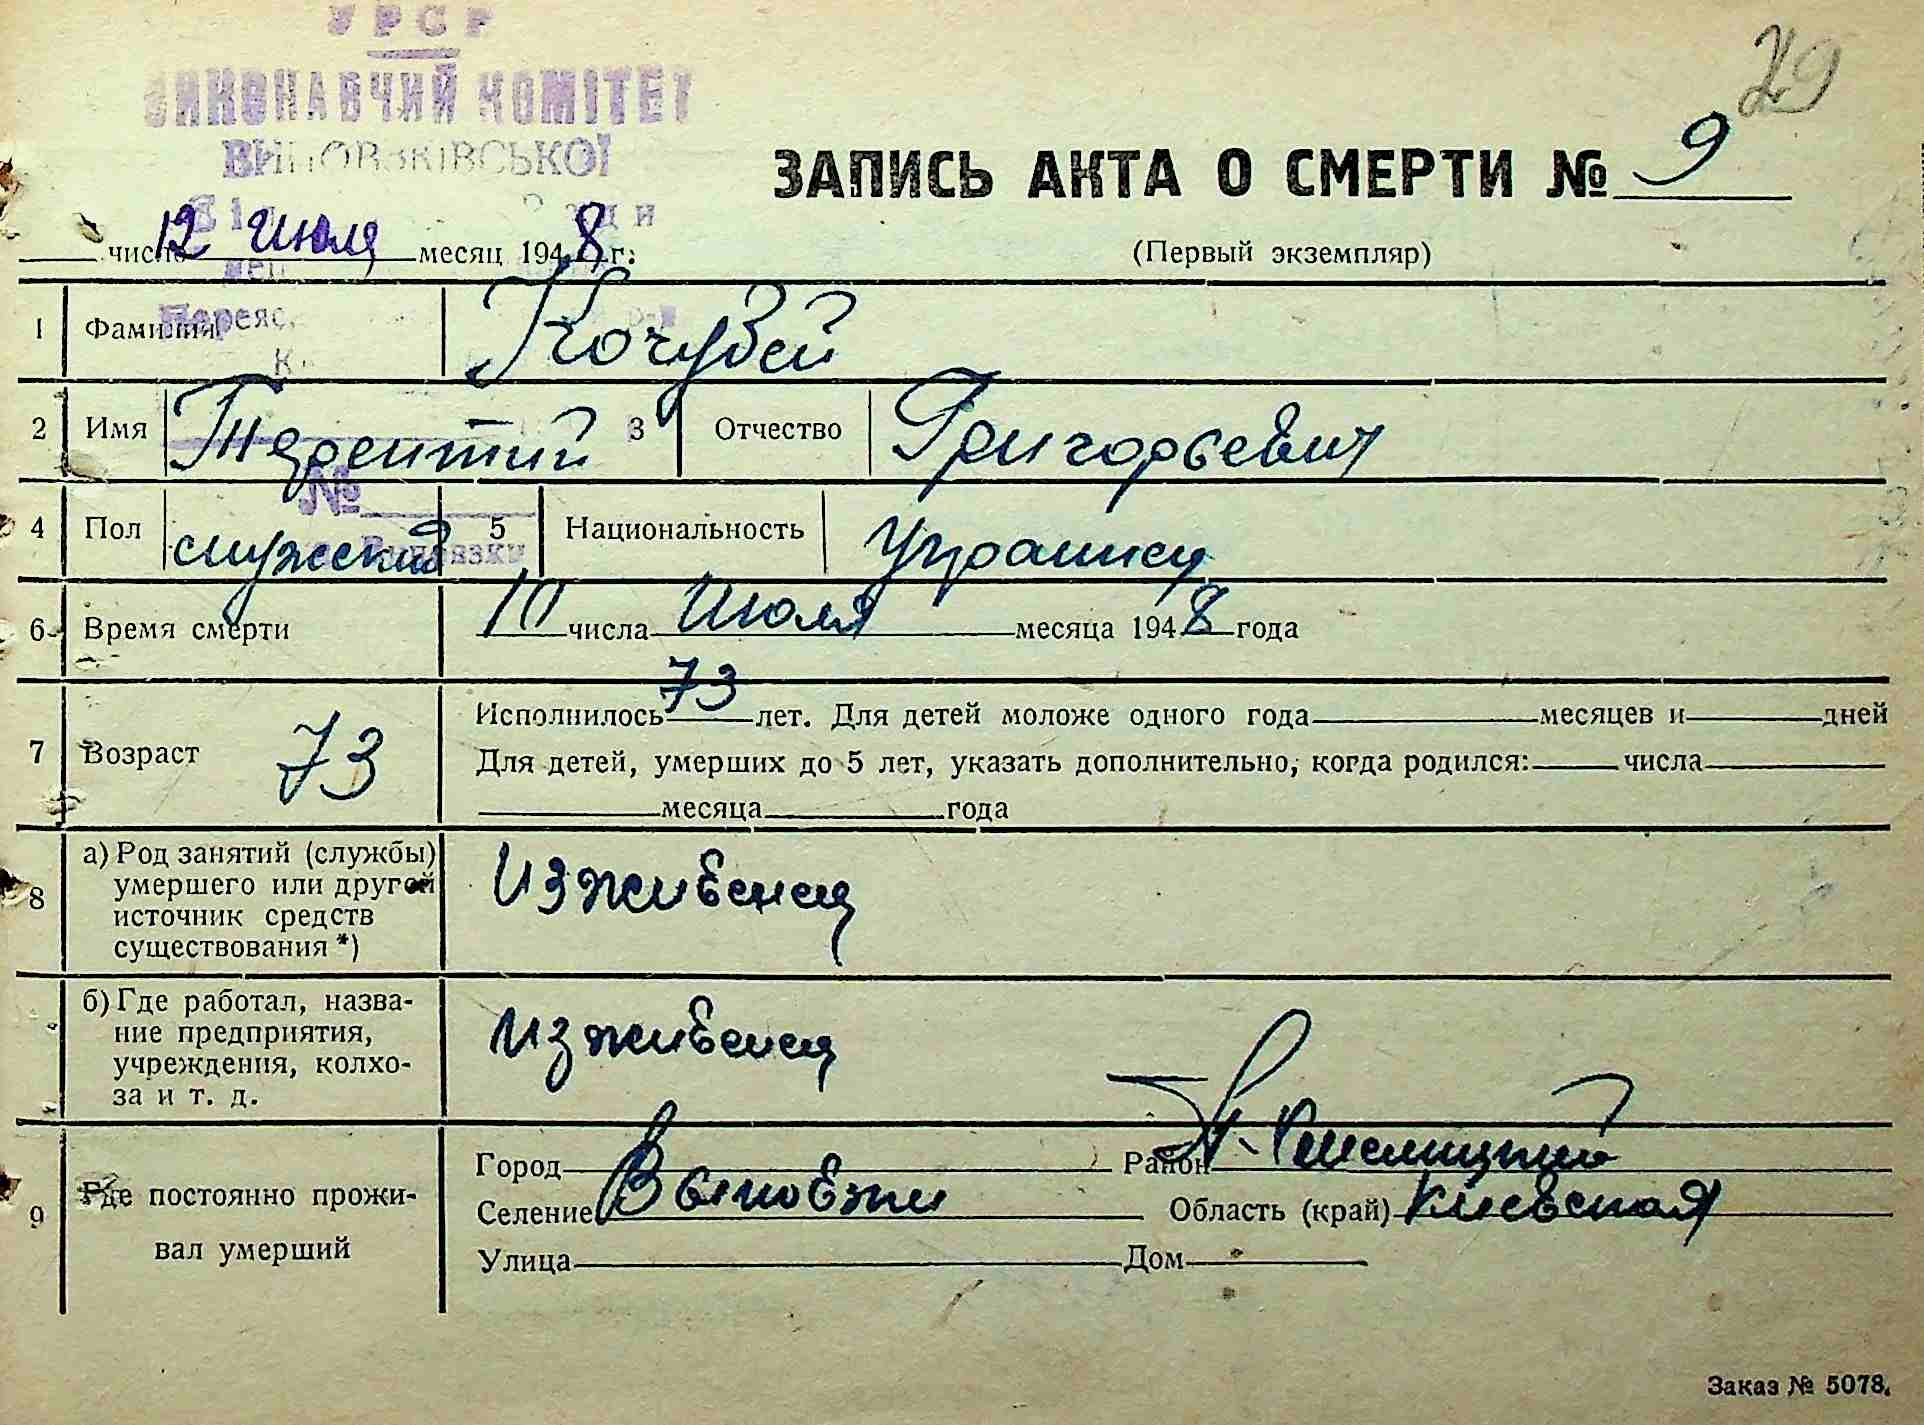 УРСР
29
ВИКОНАВЧИЙ КОМІТЕТ
ЗАПИСЬ АКТА О СМЕРТИ № 9
число 12 Июля месяц 1948 г.
(Первый экземпляр)
1 Фамилия Кочубей
2 Имя Терентий 3 Отчество Григорьевич
№
4 Пол мужской 5 Национальность Украинец
6 Время смерти 10 числа Июля месяца 1948 года
7 Возраст 73 Исполнилось 73 лет. Для детей моложе одного года месяцев и дней
Для детей, умерших до 5 лет, указать дополнительно, когда родился: числа
месяца года
8 а) Род занятий (службы) умершего или другой источник средств существования *) изживенец
б) Где работал, назва-
ние предприятия,
учреждения, колхо-
за и т. д. изживенец
9 Где постоянно прожи-
вал умерший
Город Район П-Хмельницкий
Селение Выповзки Область (край) Киевская
Улица Дом
Заказ № 5078.